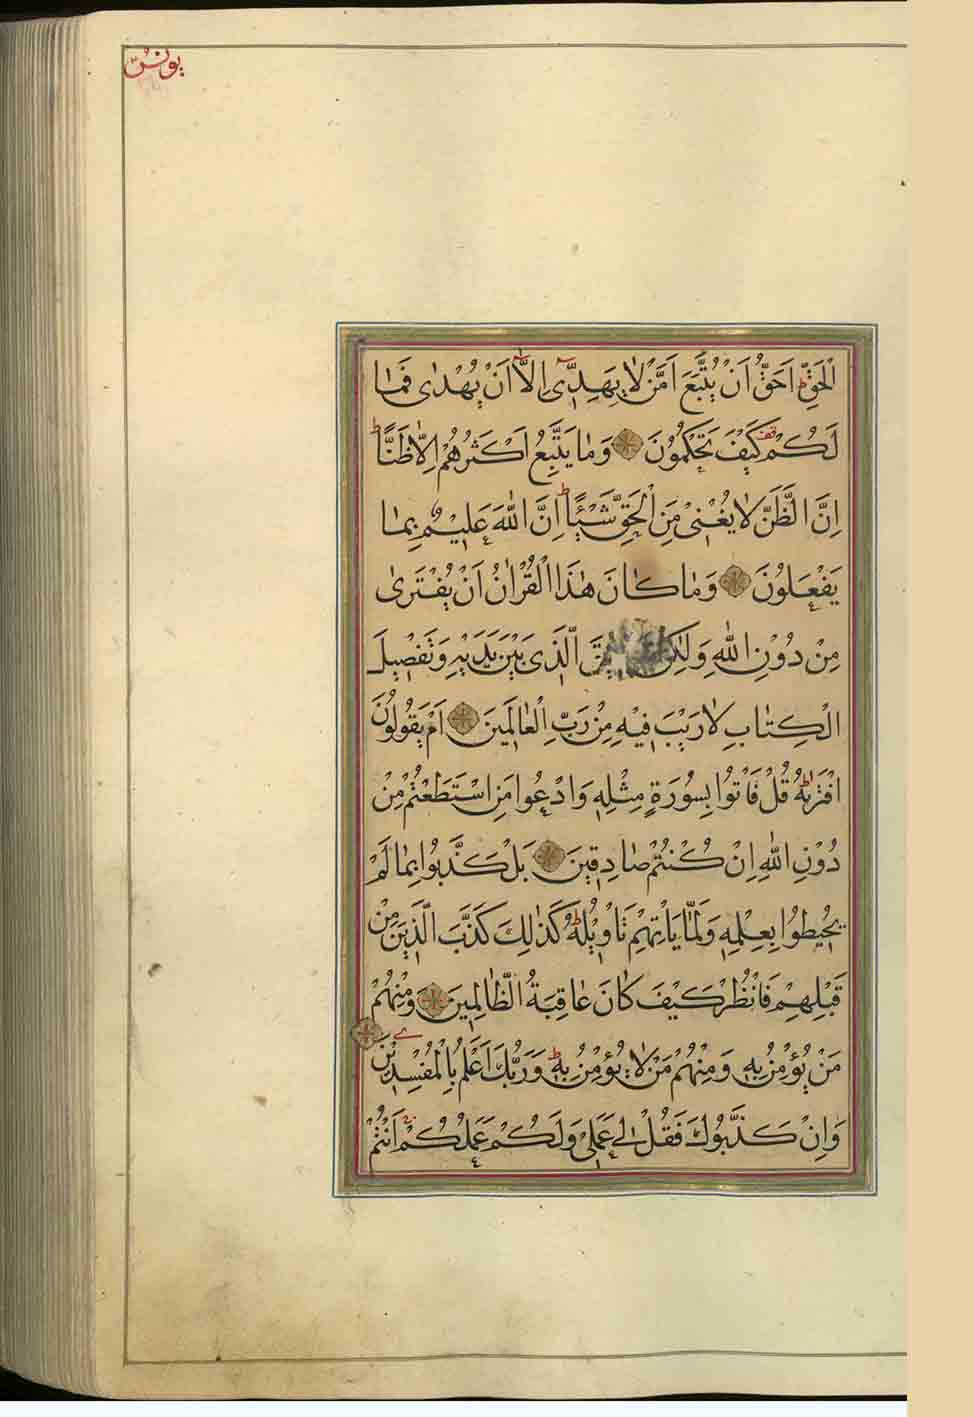 يونس
الْحَقِّ اَحَقُّ اَنْ يُتَّبَعَ اَمَّنْ لَا يَهِدِّىٓ اِلَّٓا اَنْ يُهْدٰى فَمَا
لَكُمْ قف كَيْفَ تَحْكُمُوْنَ وَمَا يَتَّبِعُ اَكْثَرُهُمْ اِلَّا ظَنًّا ط
اِنَّ الظَّنَّ لَا يُغْنِىْ مِنَ الْحَقِّ شَيْئًا ط اِنَّ اللّٰهَ عَلِيْمٌ بِمَا
يَفْعَلُوْنَ وَمَا كَانَ هٰذَا الْقُرْاٰنُ اَنْ يُفْتَرٰى
مِنْ دُوْنِ اللّٰهِ وَلٰكِنْ الَّذِى بَيْنَ يَدَيْهِ وَتَفْصِيْلَ
الْكِتَابِ لَا رَيْبَ فِيْهِ مِنْ رَبِّ الْعَالَمِيْنَ اَمْ يَقُوْلُوْنَ
افْتَرٰىهُ ط قُلْ فَاْتُوْا بِسُوْرَةٍ مِثْلِهٖ وَادْعُوْا مَنِ اسْتَطَعْتُمْ مِنْ
دُوْنِ اللّٰهِ اِنْ كُنْتُمْ صَادِقِيْنَ بَلْ كَذَّبُوْا بِمَا لَمْ
يُحِيْطُوْا بِعِلْمِهٖ وَلَمَّا يَاْتِهِمْ تَاْوِيْلُهٗ ط كَذٰلِكَ كَذَّبَ الَّذِيْنَ مِنْ
قَبْلِهِمْ فَانْظُرْ كَيْفَ كَانَ عَاقِبَةُ الظَّالِمِيْنَ وَمِنْهُمْ
مَنْ يُؤْمِنُ بِهٖ وَمِنْهُمْ مَنْ لَا يُؤْمِنُ بِهٖ ط وَرَبُّكَ اَعْلَمُ بِالْمُفْسِدِيْنَ
وَاِنْ كَذَّبُوْكَ فَقُلْ لِى عَمَلِىْ وَلَكُمْ عَمَلُكُمْ اَنْتُمْ